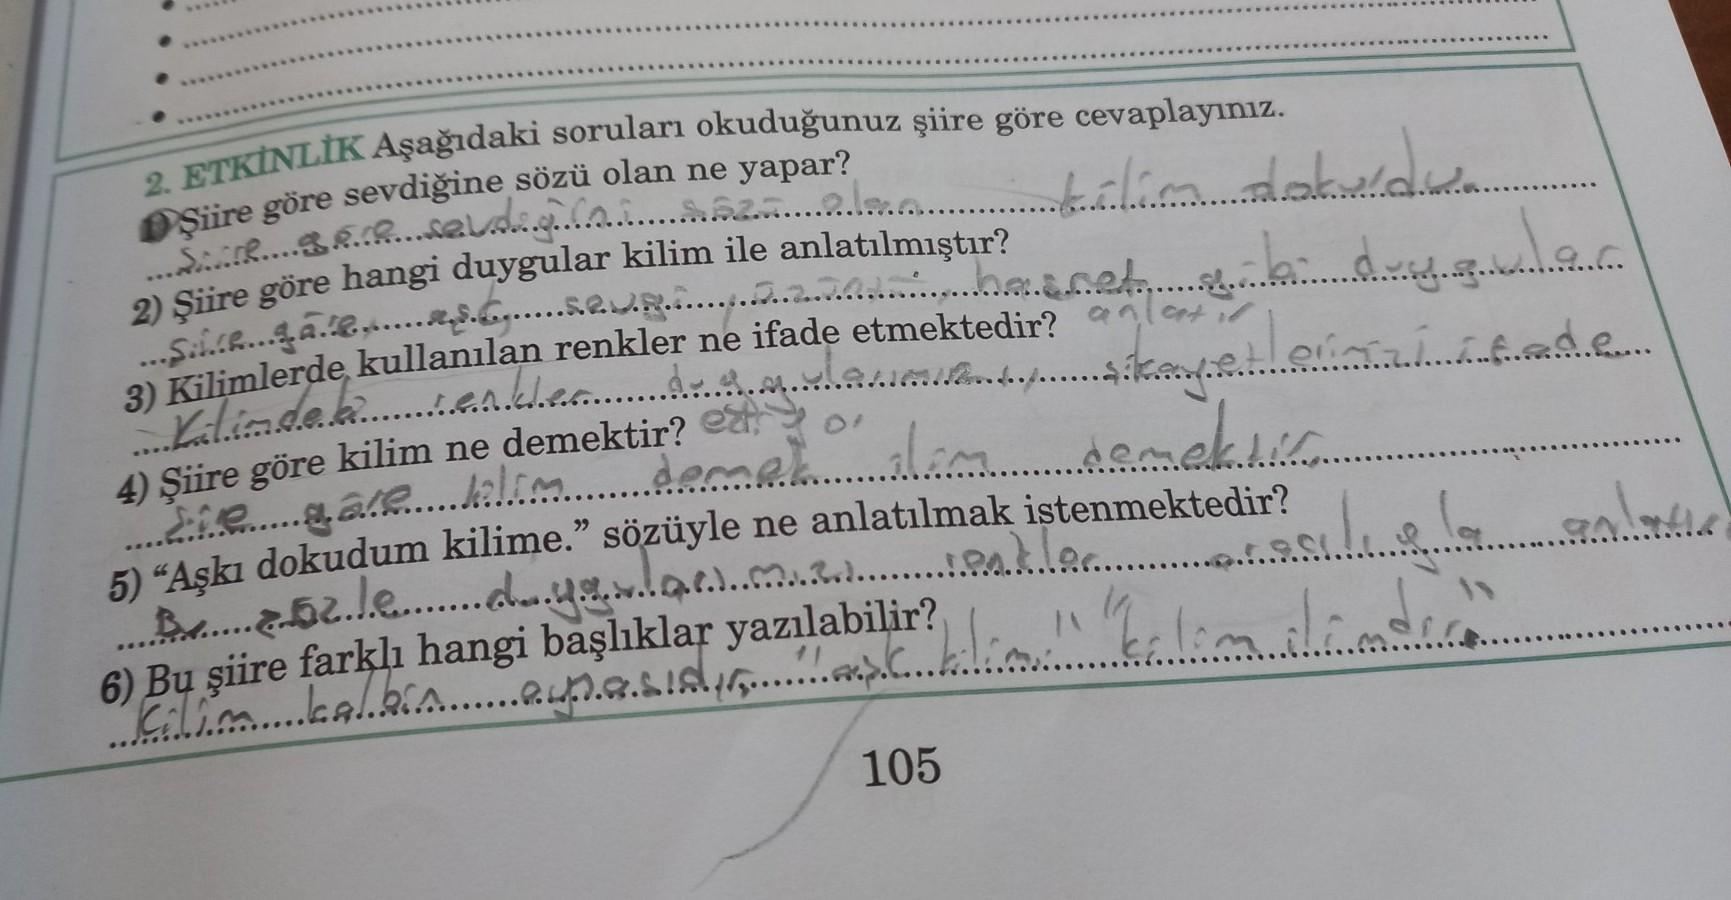 2. ETKİNLİK Aşağıdaki soruları okuduğunuz şiire göre cevaplayınız.
1) Şiire göre sevdiğine sözü olan ne yapar?
Şiire göre sevdiğini sözü olan kilim dokurdu.
2) Şiire göre hangi duygular kilim ile anlatılmıştır?
Şiire göre, aşk, sevgi, üzüntü, hasret gibi duygular
anlatır
3) Kilimlerde kullanılan renkler ne ifade etmektedir?
Kilimdeki renkler duygularımızı, şikayetlerimizi ifade
ediyor
4) Şiire göre kilim ne demektir?
Şiire göre kilim demek ilim demektir.
5) “Aşkı dokudum kilime.” sözüyle ne anlatılmak istenmektedir?
Bu sözle duygularımızı renkler aracılığla anlatır
6) Bu şiire farklı hangi başlıklar yazılabilir?
Kilim kalbin aynasıdır, "aşk kilimi" "kilim ilimdir"
105